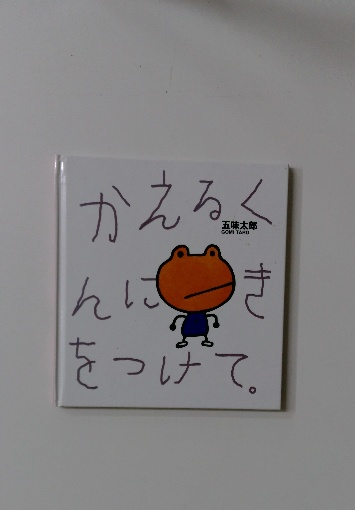 かえるく
五味太郎
GOMI TARO
んにき
をつけて。